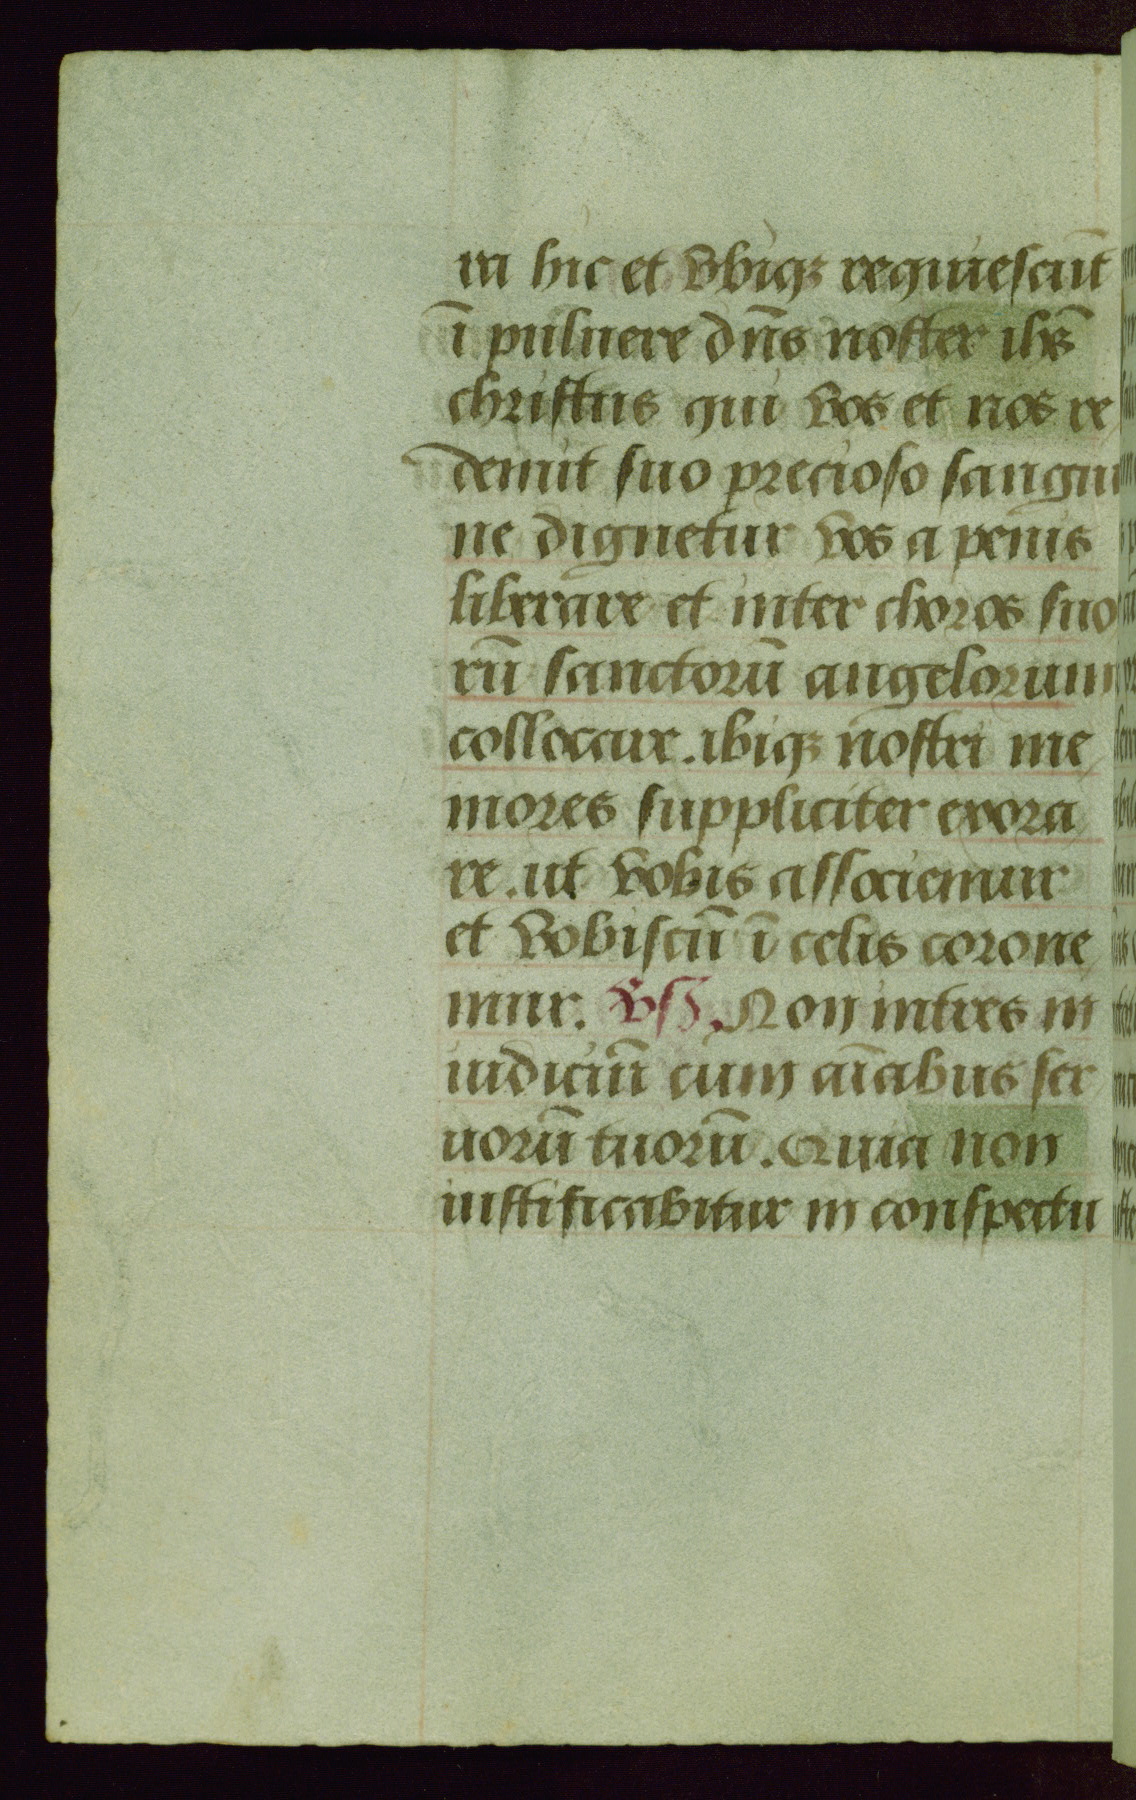 ra hic et vbiqꝫ requiescūt
ī puluere dn̄s noster ihs̄
christus qui vos et nos re
demit suo precioso sangui
ne dignetur vos a penis
liberare et inter choros suo
rū sanctorū angelorum
collocare. ibiqꝫ nostri me
mores suppliciter exora
re. ut vobis associemur
et vobiscū ī celis corone
mur. Vs̄. Non intres in
iudiciū cum aīabus ser
uorū tuorū. Quia non
iustificabitur in conspectu